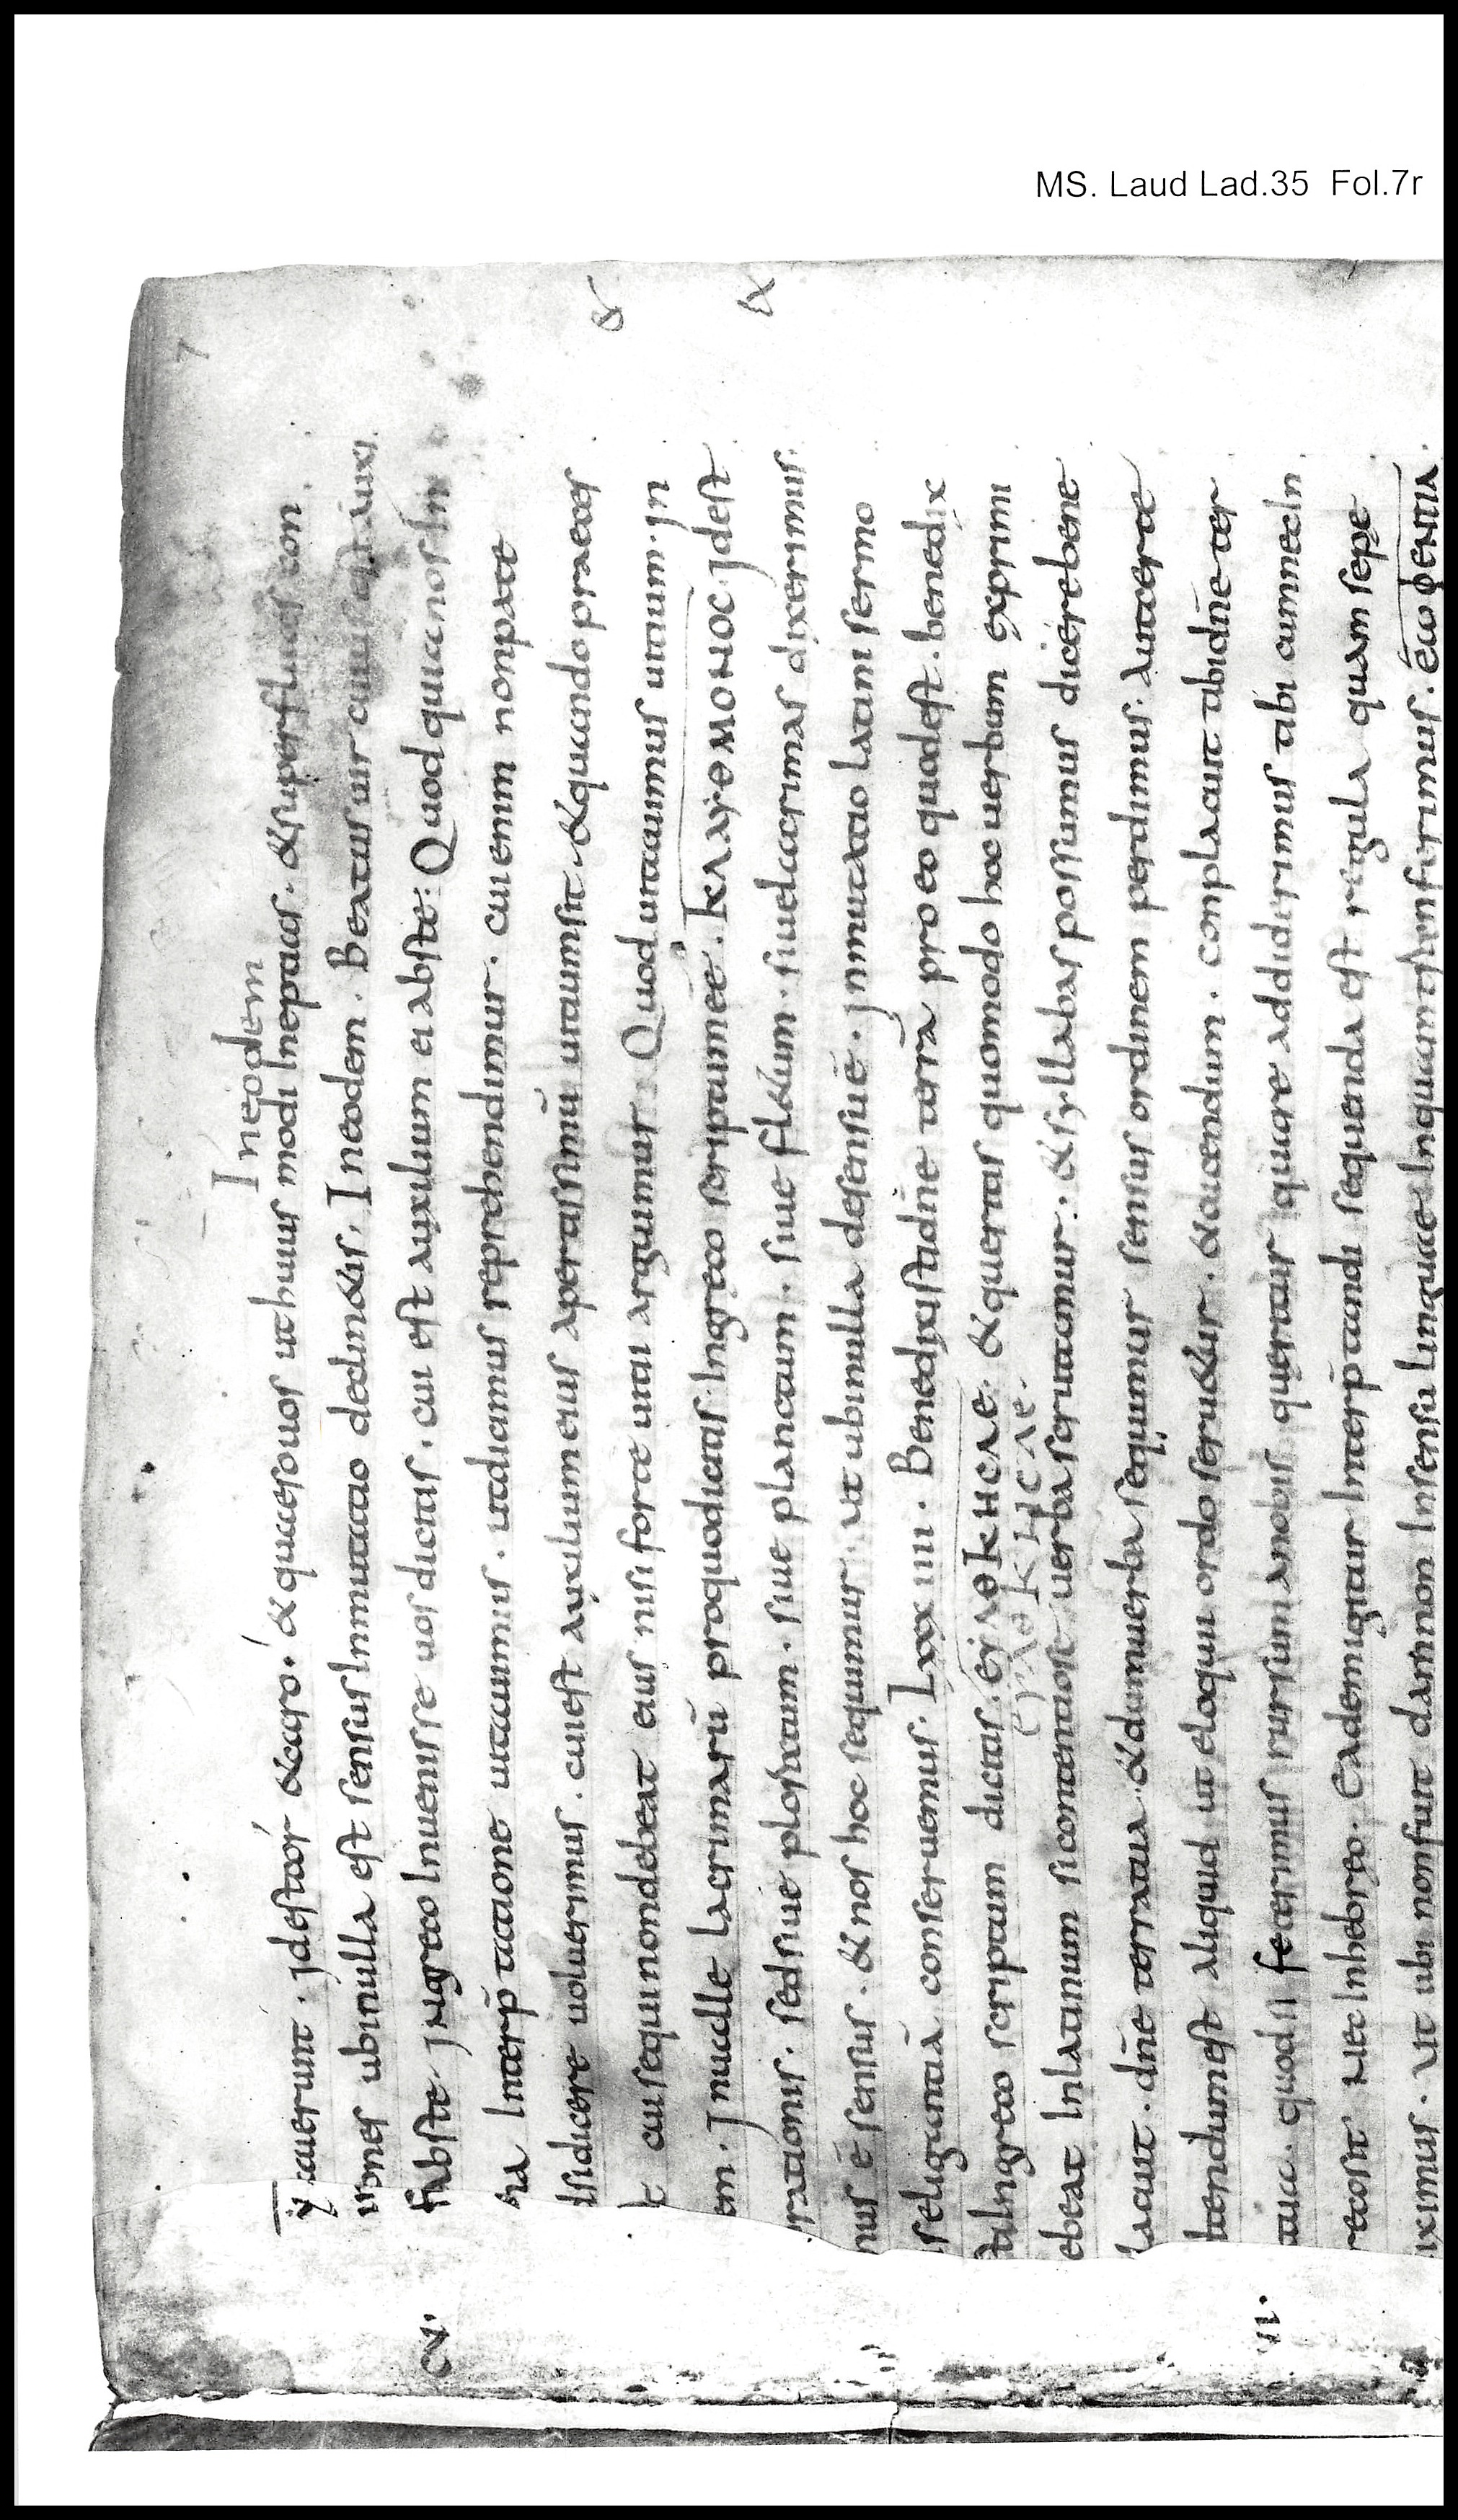 MS. Laud Lad.35 Fol.7r
7
Ineodem
cauerunt . idest cor &caro . &quaesouos ut huius modi Ineptias . &superfluas con
tiones ubinulla est sensus Inmutatio declin&is . Ineodem . Beatus uir cuius est auxi
ũ abste Ingreco Inuenisse uos dictis . cui est auxilium ei abste : Quodquianos In
na Interp̄tatione uitauimus . utdicimus reprehendimur . cui enim nonpate
dsidicere uoluerimus . cuiest auxilium eius apertissimū uitiumsit . &quando praeces
t cui sequi nondebeat eius nisi forte uitii arguimur Quod uitauimus uitium . In
em . Inualle lacrimarū proquodictis Ingreco scriptum eē . ΚΛΑΥΘΜΟΝΟC Idest
rationis . sedsiue ploratum . siue planctum . siue fl&um . siuelacrimas dixerimus .
nus ē sensus . &nos hoc sequimur . ut ubinulla desensu ē . Inmutatio latini sermo
seligantiā conseruemus . Lxxxiii . Benedixistidn̄e terrā pro eo quodest . benedix
ti Ingreco scriptum dictis . ΕΥΛΟΚΗCΛΕ . &queritis quomodo hoc uerbum exprimi
ΕΥΛΟΚΗCΛΕ .
ebeat Inlatinum sicontentiose uerbascrutamur : &syllabas possumus dicere bene
lacuit . dn̄e terratua . &dumuerba sequimur sensus ordinem perdimus . autcerte
ddendumest aliquid ut eloquii ordo seru&ur . &dicendum . conplacuit tibidn̄e ter
tua . quodsi fecerimus rursum anobis queritur quare addiderimus tibi cumnecIn
recosit nec Inhebreo . Eademigitur Interp̄tandi sequenda est regula quam sepe
iximus . ut ubi nonfuit damnon Insensu Linguae Inquamtransferimus .
cv.